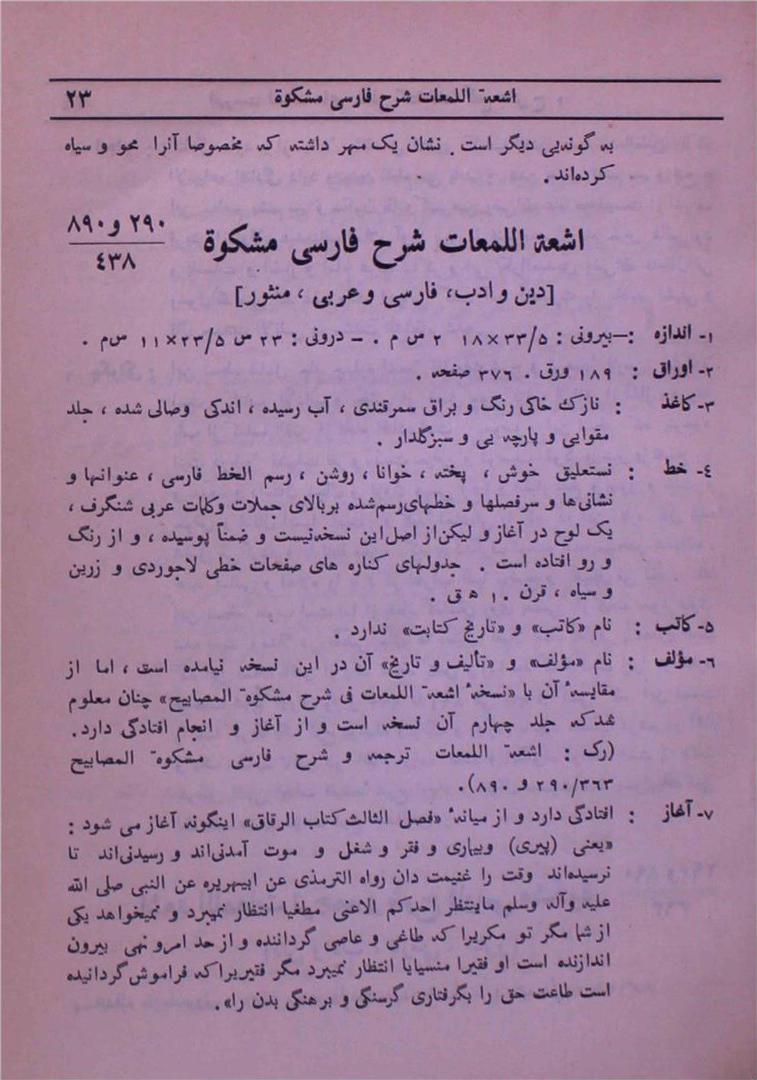 اشعة اللمعات شرح فارسی مشکوة ۲۳
به گونه‌یی دیگر است . نشان یک مهر داشته که مخصوصا آنرا محو و سیاه
کرده‌اند .
اشعة اللمعات شرح فارسی مشکوة
۲۹۰ و ۸۹۰
۴۳۸
[دین و ادب، فارسی و عربی ، منثور]
۱- اندازه : —بیرونی : ۳۳/۵×۱۸ ۲ س م . - درونی : ۲۳ س ۲۳/۵×۱۱ س م .
۲- اوراق : ۱۸۹ ورق . ۳۷۶ صفحه .
۳- کاغذ : نازک خاکی رنگ و براق سمرقندی ، آب رسیده ، اندکی وصالی شده ، جلد
مقوایی و پارچه یی و سبزگلدار .
۴- خط : نستعلیق خوش ، پخته ، خوانا ، روشن ، رسم الخط فارسی ، عنوانها و
نشانی‌ها و سرفصلها و خطهای رسم‌شده بربالای جملات وکلمات عربی شنگرف ،
یک لوح در آغاز و لیکن از اصل این نسخه نیست و ضمناً پوسیده ، و از رنگ
و رو افتاده است . جدولهای کناره های صفحات خطی لاجوردی و زرین
و سیاه ، قرن ۱۰ ه ق .
۵- کاتب : نام «کاتب» و «تاریخ کتابت» ندارد .
۶- مؤلف : نام «مؤلف» و «تألیف و تاریخ» آن در این نسخه نیامده است ، اما از
مقایسهٔ آن با «نسخهٔ اشعة اللمعات فی شرح مشکوة المصابیح» چنان معلوم
شد که جلد چهارم آن نسخه است و از آغاز و انجام افتادگی دارد.
(رک : اشعة اللمعات ترجمه و شرح فارسی مشکوة المصابیح
۲۹۰/۳۶۳ و ۸۹۰).
۷- آغاز : افتادگی دارد و از میانهٔ «فصل الثالث کتاب الرقاق» اینگونه آغاز می شود :
«یعنی (پیری) وبیاری و فقر و شغل و موت آمدنی‌اند و رسیدنی‌اند تا
نرسیده‌اند وقت را غنیمت دان رواه الترمذی عن ابیهریره عن النبی صلی الله
علیه وآله وسلم ماینتظر احدکم الاغنی مطغیا انتظار نمیبرد و نمیخواهد یکی
از شما مگر تو مکریرا که طاغی و عاصی گرداننده و از حد امرو نهی بیرون
اندازنده است او فقیرا منسیایا انتظار نمیبرد مگر فقیریرا که فراموش گردانیده
است طاعت حق را بگرفتاری گرسنگی و برهنگی بدن را».